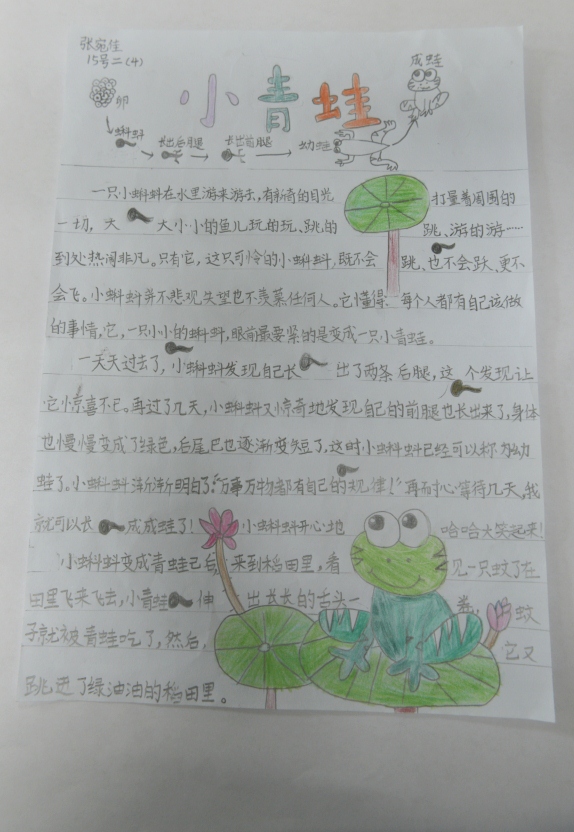 张宛佳
15号二(4)
卵
蝌蚪
长出后腿
长出前腿
幼蛙
成蛙
小青蛙
一只小蝌蚪在水里游来游去,有新奇的目光打量着周围的
一切,大大小小的鱼儿玩的玩、跳的跳、游的游……
到处热闹非凡。只有它,这只可怜的小蝌蚪,既不会跳,也不会跃、更不
会飞。小蝌蚪并不悲观失望也不羡慕任何人。它懂得每个人都有自己该做
的事情,它,一只小小的蝌蚪,眼前最要紧的是变成一只小青蛙。
一天天过去了,小蝌蚪发现自己长出了两条后腿,这个发现让
它惊喜不已。再过了几天,小蝌蚪又惊奇地发现自己的前腿也长出来了,身体
也慢慢变成了绿色,后尾巴也逐渐变短了,这时小蝌蚪已经可以称为幼
蛙了。小蝌蚪渐渐明白了:“万事万物都有自己的规律!”再耐心等待几天,我
就可以长成成蛙了!小蝌蚪开心地哈哈大笑起来!
小蝌蚪变成青蛙已后来到稻田里,看见一只蚊子在
田里飞来飞去,小青蛙伸出长长的舌头一卷,蚊
子就被青蛙吃了,然后,它又
跳进了绿油油的稻田里。